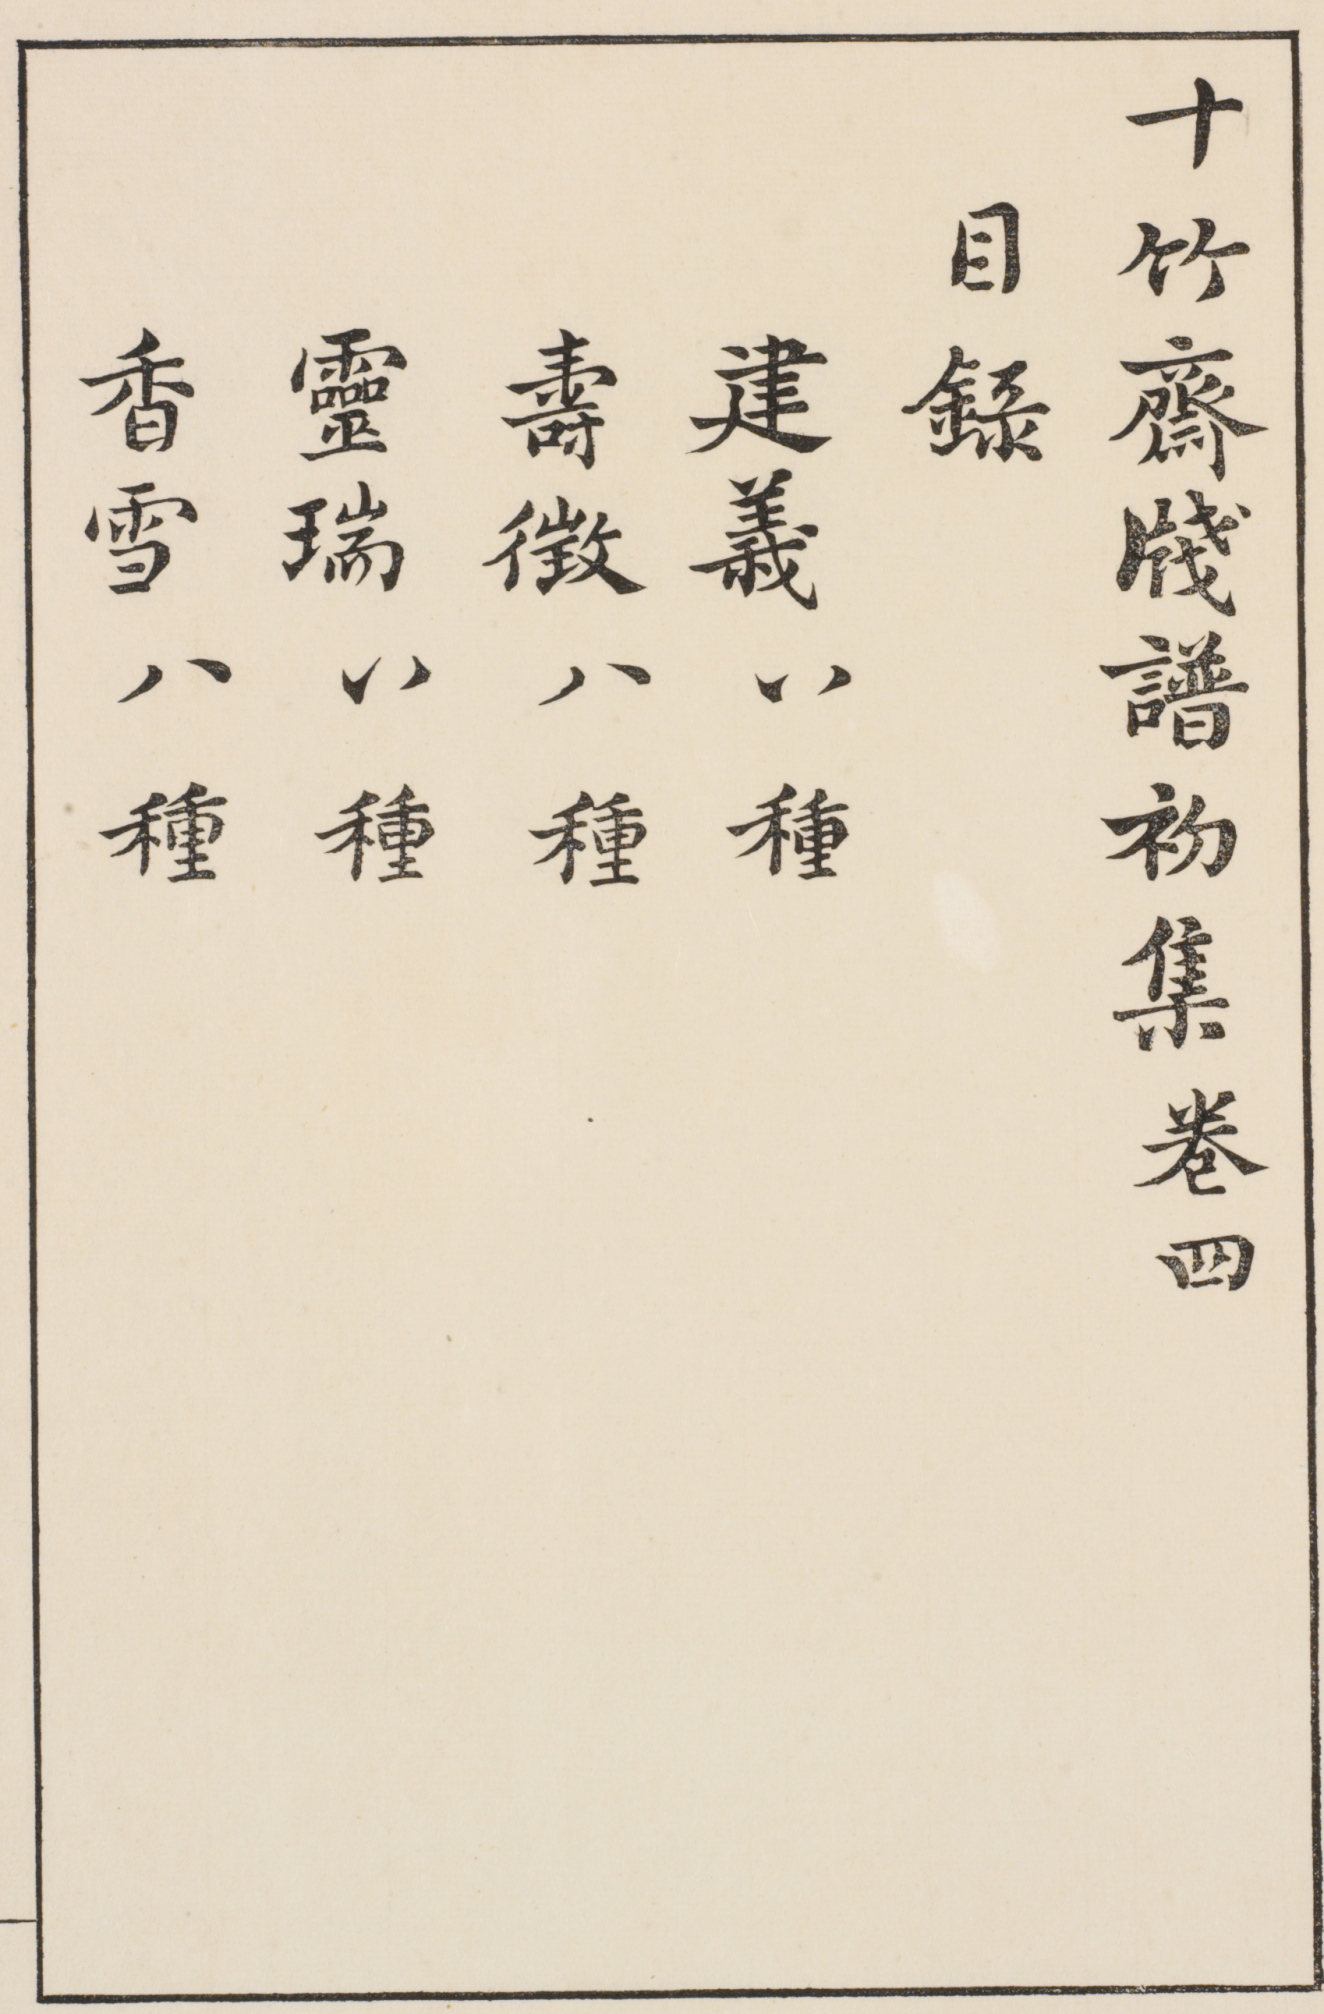 十竹齋牋譜初集卷四
目録
建義八種
壽徵八種
靈瑞八種
香雪八種